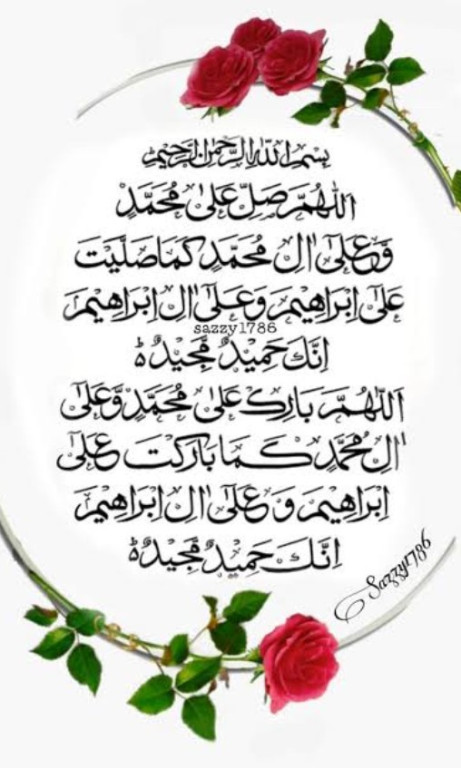 بِسْمِ اللّٰهِ الرَّحْمٰنِ الرَّحِيْمِ
اَللّٰهُمَّ صَلِّ عَلٰى مُحَمَّدٍ
وَّعَلٰٓى اٰلِ مُحَمَّدٍ كَمَا صَلَّيْتَ
عَلٰٓى اِبْرَاهِيْمَ وَعَلٰٓى اٰلِ اِبْرَاهِيْمَ
sazzy1786
اِنَّكَ حَمِيْدٌ مَّجِيْدٌ ط
اَللّٰهُمَّ بَارِكْ عَلٰى مُحَمَّدٍ وَّعَلٰٓى
اٰلِ مُحَمَّدٍ كَمَا بَارَكْتَ عَلٰٓى
اِبْرَاهِيْمَ وَ عَلٰٓى اٰلِ اِبْرَاهِيْمَ
اِنَّكَ حَمِيْدٌ مَّجِيْدٌ ط
Sazzy1786